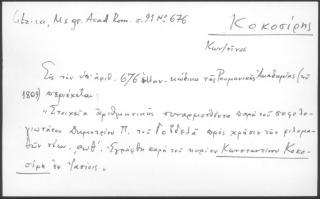 Litzica, Ms gr. Acad. Rom. σ. 91 Nº 676
Κοκοσίρης
Κων/τῖνος
Εἰς τὸν ὑπ' ἀριθ. 676 ἑλλην. κώδικα τῆς Ρουμανικῆς Ἀκαδημίας (τοῦ
1809) περιέχεται:
"Στοιχεῖα ἀριθμητικῆς συναρμοσθέντα παρὰ τοῦ σοφολο-
γιωτάτου Δημητρίου Π. τοῦ Γοβδελᾶ πρὸς χρῆσιν τῶν φιλομα-
θῶν νέων, αωθ'. Ἐγράφη παρὰ τοῦ κυρίου Κωνσταντίνου Κοκο-
σίρη ἐν Ἰασίοις."